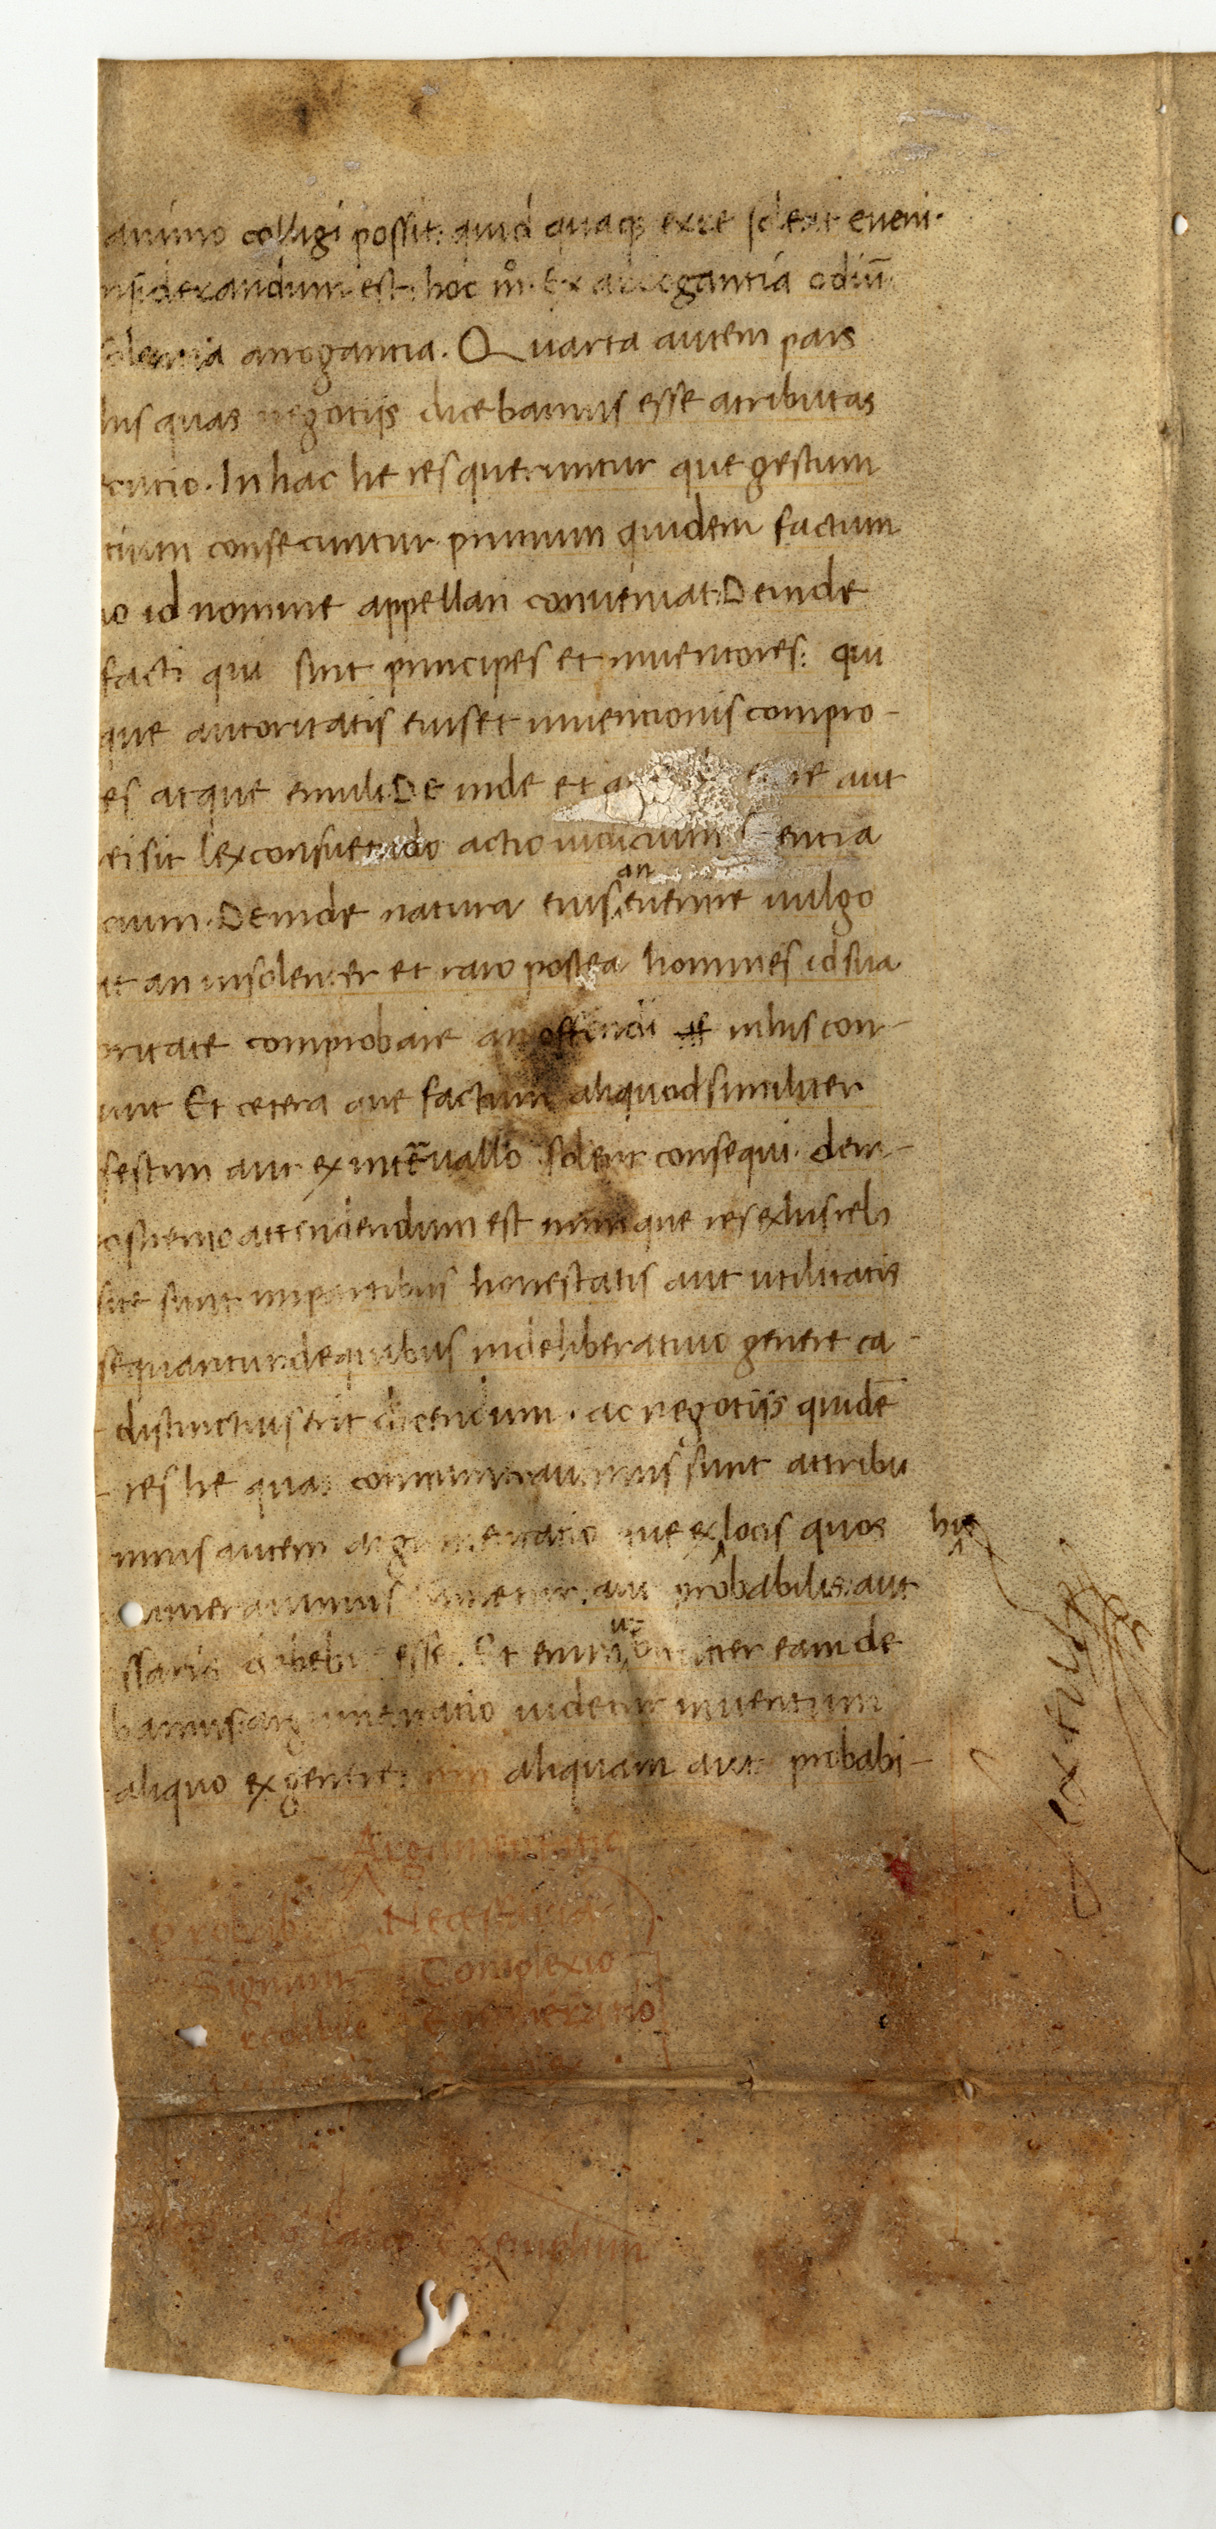 animo colligi possit: quid quaq; ex re soleat eveni·
nsiderandum est hoc mo̊. Ex arrogantia odiū
solentia arrogantia. Quarta autem pars
his quas negotiis dicebamus esse atributas
cutio. In hac he res queruntur que gestum
tium consecuntur primum quidem factum
uo id nomine appellari conveniat. Deinde
facti qui sint principes et inventores: qui
que autoritatis eius et inventionis compro-
es atque emuli. De inde et re aut
ei sit lex consuetudo actio iudicium entia
cium. Deinde natura eius an evenire vulgo
at an insolenter et raro postea homines id sua
oritate comprobare an offendi in his con-
unt Et cetera que factum aliquod similiter
festim aut ex intēruallo solent consequi. dein-
ostremo attendendum est num que res ex his reb
site sunt in partibus honestatis aut utilitatis
sequantur de quibus in deliberativo genere ca-
distinctius erit dicendum. ac negotiis quidē
res he quas commemoravimus sunt attribu
mnis autem argumentatio que ex locis quos his
memoravimus sumetur. aut probabilis: aut
ssaria debebit esse. Et enim ut breviter eam de
bamus: argumentatio videtur inventum
aliquo ex genere: rem aliquam aut probabi-
Argumentatio
probabilis Necessaria
Signum Complexio
credibile Enumeratio
Exemplum